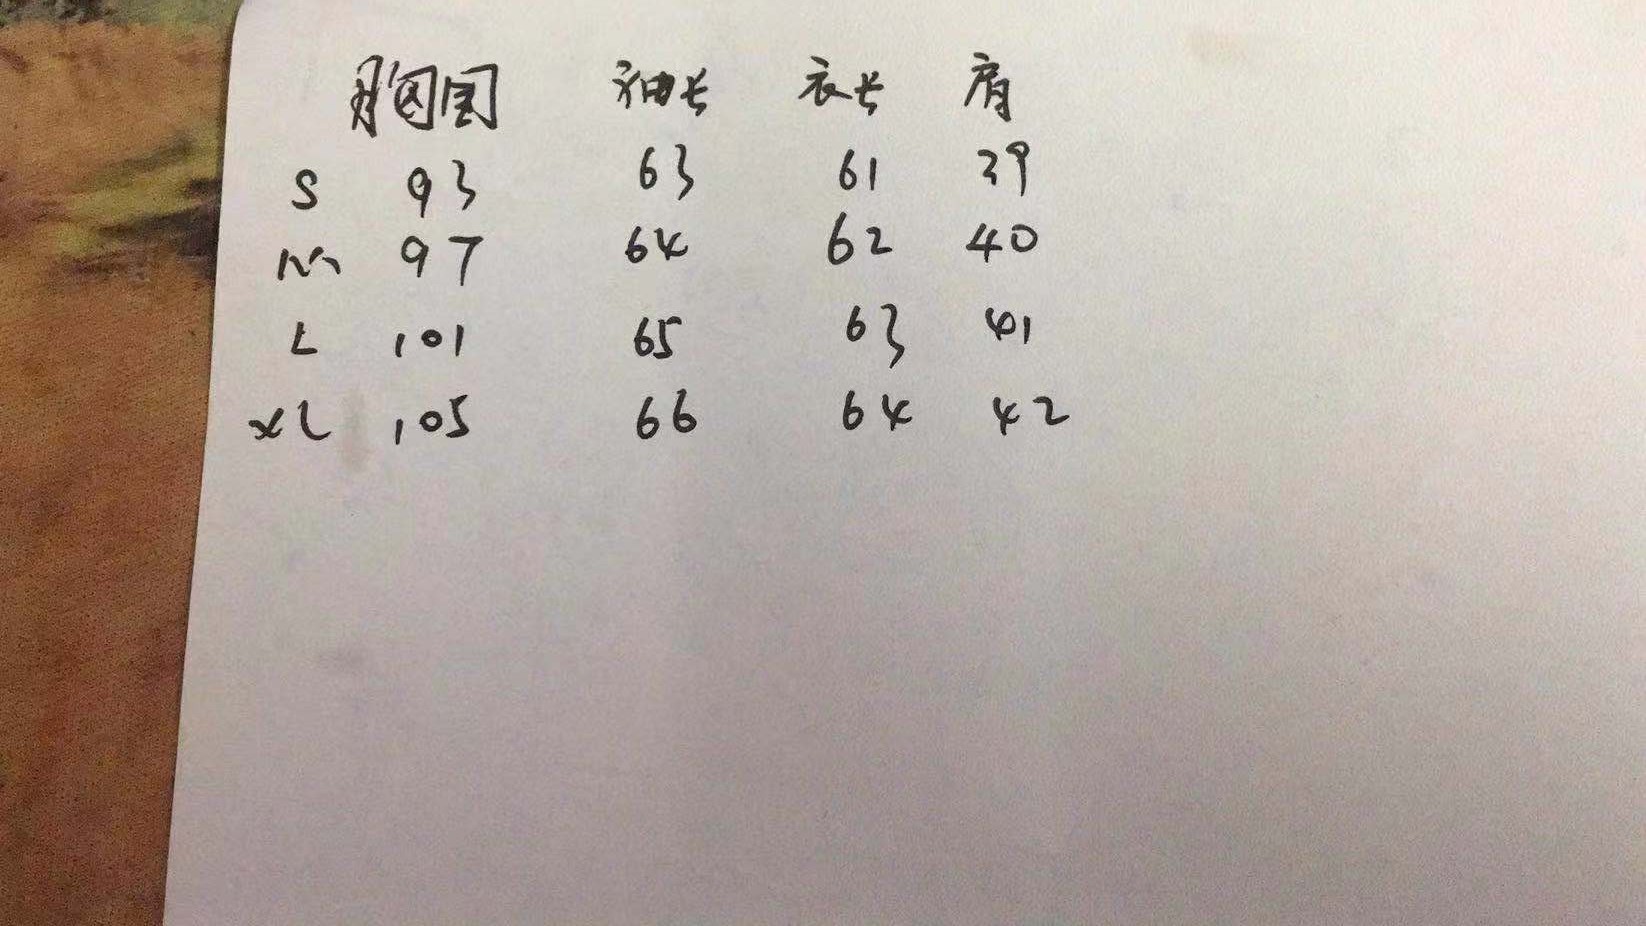 胸围 袖长 衣长 肩
S 93 63 61 39
M 97 64 62 40
L 101 65 63 41
XL 105 66 64 42